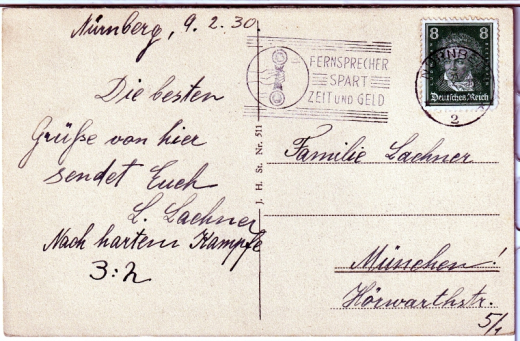 Nürnberg, 9.2.30.
Die besten
Grüße von hier
sendet Euch
L. Lachner
Nach hartem Kampfe
3:2
FERNSPRECHER
SPART
ZEIT UND GELD
8 8
Deutsches Reich
NÜRNBERG
2
J. H. St. Nr. 511
Familie Lachner
München!
Hörwarthstr.
5/1